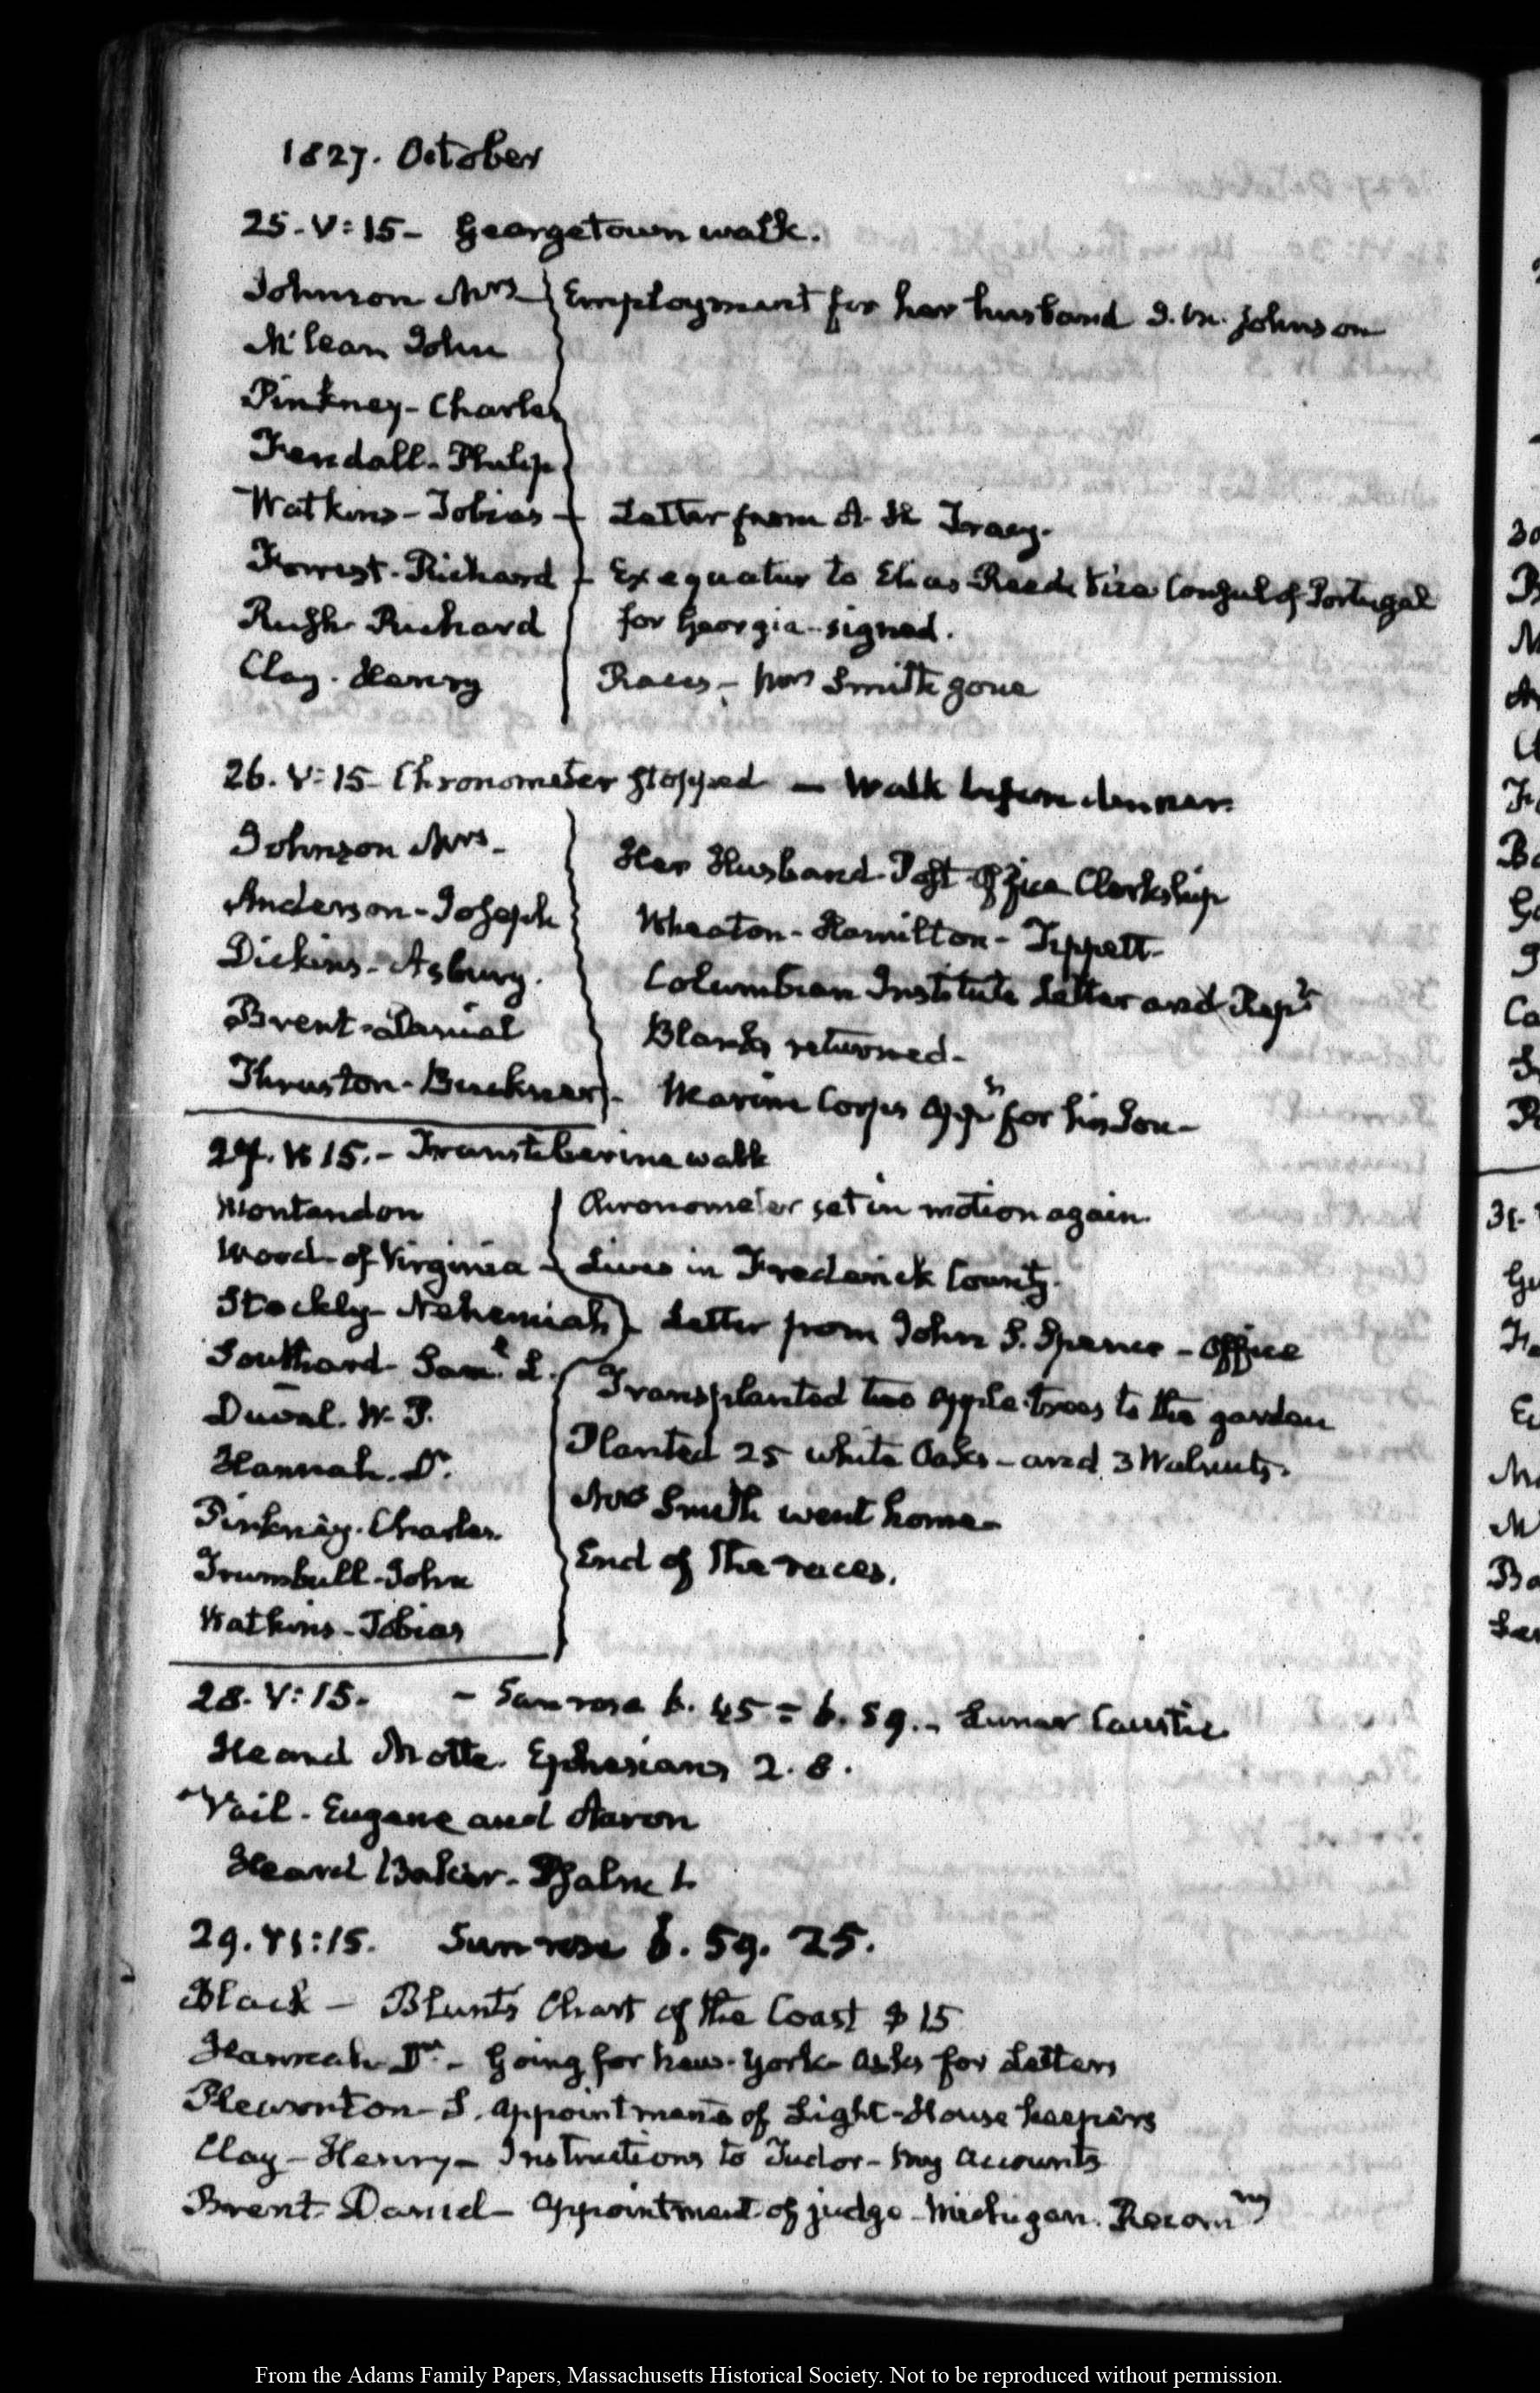 1827. October
25. V:15 - Georgetown walk.
Johnson Mrs - Employment for her husband J. M. Johnson
McLean John
Pinkney - Charles
Fendall - Philip
Watkins - Tobias - Letter from A. H. Tracy.
Forrest - Richard - Exequatur to Elias Reed Vice Consul of Portugal
Rush Richard for Georgia - signed.
Clay - Henry Races - Mrs Smith gone
26. V:15 - Chronometer stopped - Walk before dinner.
Johnson Mrs - Her Husband - Post-Office Clerkship
Anderson - Joseph Wheaton - Hamilton - Tippett -
Dickins - Asbury. Columbian Institute Letter and Rept
Brent - Daniel Blanks returned -
Thruston - Buckner - Marine Corps Appt for his Son -
27. V:15. - Transtiberine walk
Montandon Chronometer set in motion again.
Wood - of Virginia - Lives in Frederick County.
Stockly - Nehemiah - Letter from John S. Spence - Office
Southard - Saml L. Transplanted two apple-trees to the garden
Duval. W. P. Planted 25 white Oaks - and 3 Walnuts.
Hannah. Dr. Mrs Smith went home -
Pinkney. Charles. End of the races.
Trumbull - John
Watkins - Tobias
28. V:15. - Sun rose 6. 45 = 6. 59. - Lunar Caustic
Heard Motte. Ephesians 2. 8.
Vail - Eugene and Aaron
Heard Baker - Psalm 1.
29. VI:15. Sun rose 6. 59. 25.
Black - Blunt's Chart of the Coast $15
Hannah - Dr - Going for New-York - asks for Letters
Pleasonton - S. Appointments of Light-House keepers
Clay - Henry - Instructions to Tudor - My Accounts
Brent - Daniel - Appointment of judge - Michigan.
From the Adams Family Papers, Massachusetts Historical Society. Not to be reproduced without permission.